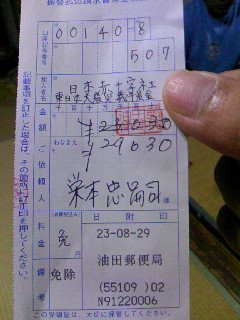 振替払込請求書兼受領証
口座記号番号
00140-8
507
加入者名
日本赤十字社
東日本大震災義援金
金額
¥29030
おなまえ
¥29030
ご依頼人
様
料金
(消費税込み)
免
備考
免除
日附印
23-08-29
油田郵便局
(55109 )02
N91220006
記載事項を訂正した場合は、その箇所に訂正印を押してください。
この受領証は、大切に保管してください。